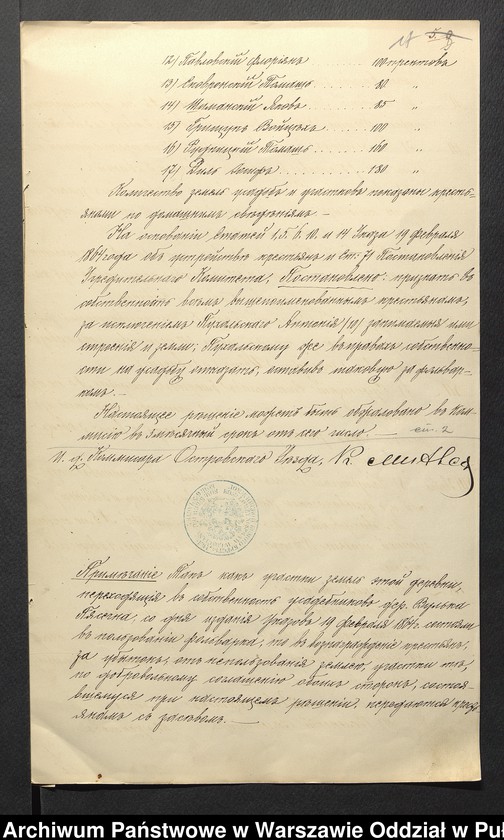 5. 9
17
12) Павловскій Флоріянъ . . . . . 100 прентовъ
13) Сковронскій Томашъ . . . . . 80 "
14) Шиманскій Яковъ . . . . . 85 "
15) Грищукъ Войцѣхъ . . . . . 100 "
16) Рудницкій Томашъ . . . . . 160 "
17) Диль Іосифъ . . . . . 130 "
Количество земли усадьбъ и участковъ показаны кресть-
янами по домашнимъ свѣдѣніямъ. —
На основаніи Статей 1, 5, 6, 10, и 14 Указа 19 Февраля
1864 года объ устройствѣ крестьянъ и Ст: 71 Постановленія
Учредительнаго Комитета, Постановлено: признать въ
собственность всѣмъ вышепоименованнымъ крестьянамъ,
за исключеніемъ Пухольскаго Антонія (10) занимаемыя ими
строенія и земли; Пухольскому же въ правахъ собственно-
сти на усадьбу отказать, оставивъ таковую за фольвар-
комъ. —
Настоящее рѣшеніе можетъ быть обжаловано въ Ком-
мисію въ мѣсячный срокъ отъ сего числа. —
ст. 2
И. д. Коммисара Островскаго Уѣзда,
Примѣчаніе Такъ какъ участки земли этой деревни,
переходящія въ собственность усадебниковъ дер. Вульки
Пясечна, со дня изданія Указовъ 19 Февраля 1864 г. состояли
въ пользованіи фольварка, то въ вознагражденіе крестьянъ,
за убытокъ, отъ неиспользованія землею, участки тѣ,
по добровольному соглашенію обѣихъ сторонъ, состояв-
шемуся при настоящемъ рѣшеніи, передаются кресть-
янамъ съ засѣвомъ. —
Archiwum Państwowe w Warszawie Oddział w Pu